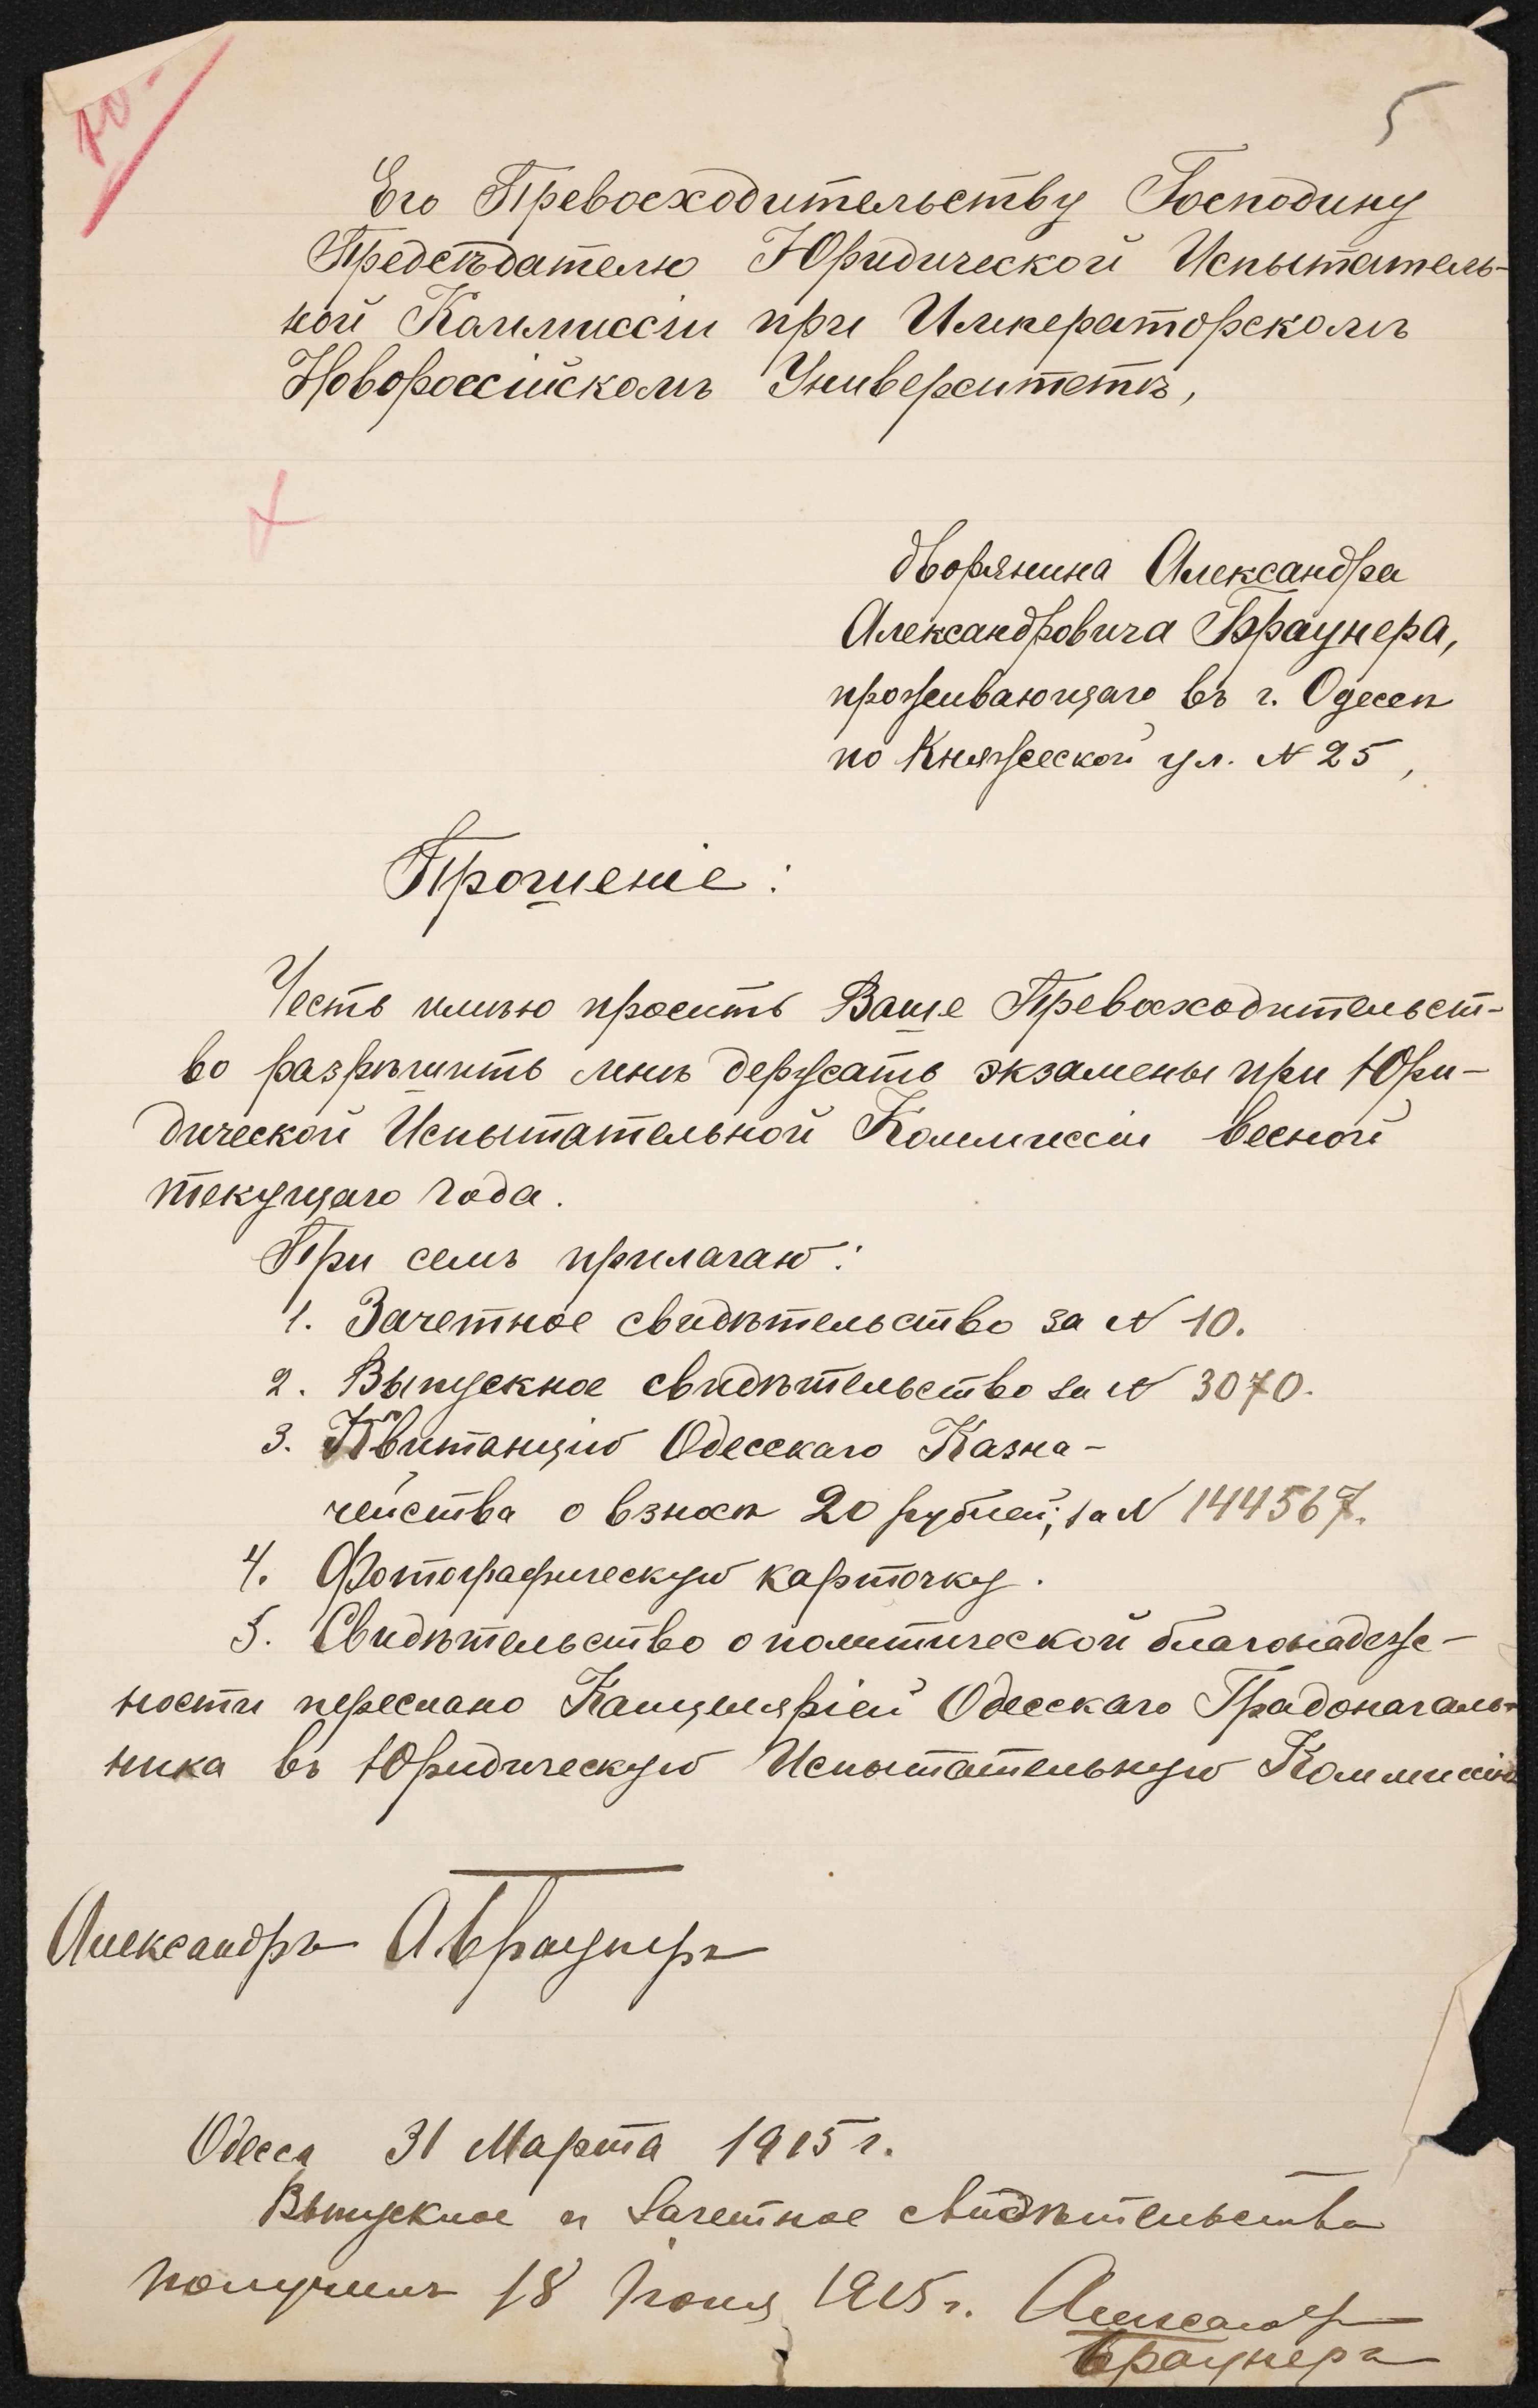 10-
5
Его Превосходительству Господину
Предсѣдателю Юридической Испытатель-
ной Коммиссіи при Императорскомъ
Новороссійскомъ Университетѣ,
дворянина Александра
Александровича Браунера,
проживающаго въ г. Одессѣ
по Княжеской ул. № 25,
Прошеніе:
Честь имѣю просить Ваше Превосходительст-
во разрѣшить мнѣ держать экзамены при Юри-
дической Испытательной Коммиссіи весной
текущаго года.
При семъ прилагаю:
1. Зачетное свидѣтельство за № 10.
2. Выпускное свидѣтельство за № 3070.
3. Квитанцію Одесскаго Казна-
чейства о взносѣ 20 рублей, за № 144567.
4. Фотографическую карточку.
5. Свидѣтельство о политической благонадеж-
ности переслано Канцеляріей Одесскаго Градоначаль-
ника въ Юридическую Испытательную Коммиссію
Александръ А. Браунеръ
Одесса 31 Марта 1915 г.
Выпускное и Зачетное свидѣтельства
получилъ 18 Іюня 1915 г. Александръ
Браунеръ